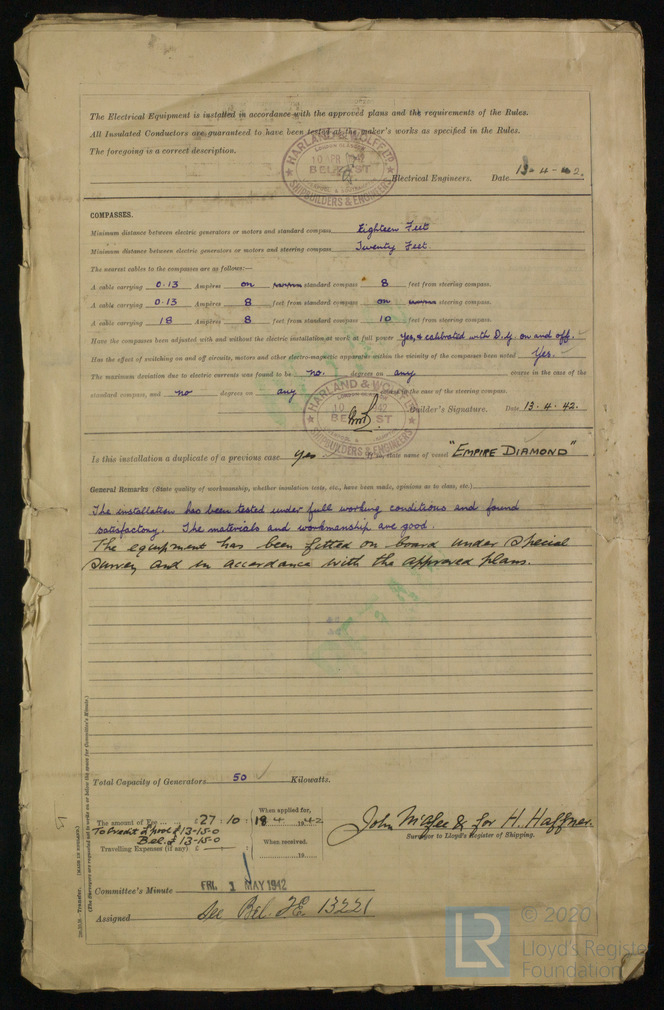 The Electrical Equipment is installed in accordance with the approved plans and the requirements of the Rules.
All Insulated Conductors are guaranteed to have been tested at the maker's works as specified in the Rules.
The foregoing is a correct description.
HARLAND & WOLFF LTD
10 APR 1942
BELFAST
SHIPBUILDERS & ENGINEERS
Electrical Engineers. Date 13-4-42.
COMPASSES.
Minimum distance between electric generators or motors and standard compass Eighteen Feet
Minimum distance between electric generators or motors and steering compass Twenty Feet
The nearest cables to the compasses are as follows:—
A cable carrying 0.13 Ampères on standard compass 8 feet from steering compass.
A cable carrying 0.13 Ampères 8 feet from standard compass on steering compass.
A cable carrying 18 Ampères 8 feet from standard compass 10 feet from steering compass.
Have the compasses been adjusted with and without the electric installation at work at full power Yes, & calibrated with D.G. on and off.
Has the effect of switching on and off circuits, motors and other electro-magnetic apparatus within the vicinity of the compasses been noted Yes.
The maximum deviation due to electric currents was found to be no. degrees on any course in the case of the
standard compass, and no degrees on any course in the case of the steering compass.
HARLAND & WOLFF LTD
10 1942
BELFAST
SHIPBUILDERS & ENGINEERS
Builder's Signature. Date 13.4.42.
Is this installation a duplicate of a previous case yes If so, state name of vessel "EMPIRE DIAMOND"
General Remarks (State quality of workmanship, whether insulation tests, etc., have been made, opinions as to class, etc.)
The installation has been tested under full working conditions and found
satisfactory. The materials and workmanship are good.
The equipment has been fitted on board under Special
Survey and in accordance with the approved plans.
Total Capacity of Generators 50 Kilowatts.
The amount of Fee ... ... £ 27 : 10 : When applied for, 18.4.1942
To credit L'pool £13-15-0
Bel. £13-15-0
Travelling Expenses (if any) £ : : When received, 19
John McAfee & for H. Haffner.
Surveyor to Lloyd's Register of Shipping.
Committee's Minute FRI. 1 MAY 1942
Assigned See Bel. F.E. 13221
Transfer. (MADE IN ENGLAND.)
(The Surveyors are requested not to write on or below the space for Committee's Minute.)
LR
© 2020
Lloyd's Register
Foundation